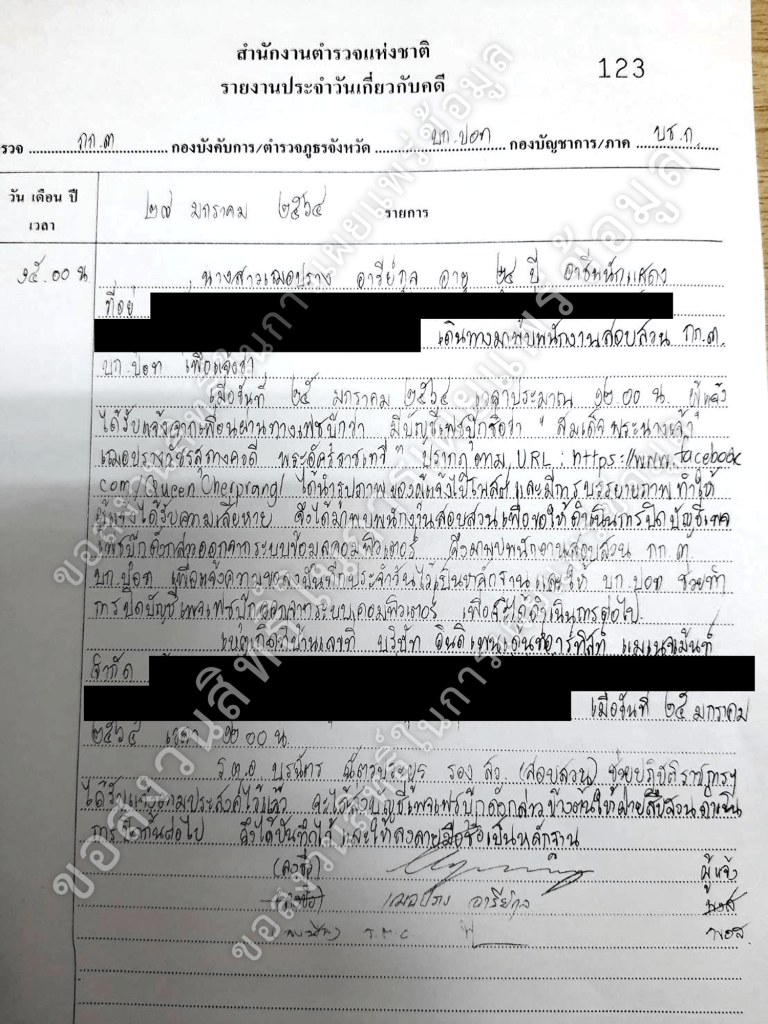 สำนักงานตำรวจแห่งชาติ
รายงานประจำวันเกี่ยวกับคดี
123
รวจ กก.๓ กองบังคับการ/ตำรวจภูธรจังหวัด บก.ปอท กองบัญชาการ/ภาค บช.ก.
วัน เดือน ปี
เวลา
๒๗ มกราคม ๒๕๖๔ รายการ
๑๕.๐๐ น นางสาวเฌอปราง อารีย์กุล อายุ ๒๔ ปี อาชีพนักแสดง
ที่อยู่
เดินทางมาพบพนักงานสอบสวน กก.๓.
บก.ปอท เพื่อแจ้งว่า
เมื่อวันที่ ๒๕ มกราคม ๒๕๖๔ เวลาประมาณ ๑๒.๐๐ น. ผู้แจ้ง
ได้รับแจ้งจากเพื่อนผ่านทางเฟซบุ๊กว่า มีบัญชีเฟซบุ๊กชื่อว่า " สมเด็จพระนางเจ้า
เฌอปรางพัชรสุทางคอดี พระอัครราชเทวี " ปรากฏตาม URL : https://www.facebook
com/QueenCherprang/ ได้นำรูปภาพของผู้แจ้งไปโพสต์ และมีการบรรยายภาพ ทำให้
ผู้แจ้งได้รับความเสียหาย จึงได้มาพบพนักงานสอบสวนเพื่อขอให้ดำเนินการปิดบัญชีเพจ
เฟซบุ๊กดังกล่าวออกจากระบบข้อมูลคอมพิวเตอร์ จึงมาพบพนักงานสอบสวน กก.๓
บก.ปอท เพื่อแจ้งความขอลงบันทึกประจำวันไว้เป็นหลักฐาน และให้ บก.ปอท ช่วยทำ
การปิดบัญชีเพจเฟซบุ๊กออกจากระบบคอมพิวเตอร์ เพื่อจะได้ดำเนินการต่อไป
เหตุเกิดที่บ้านเลขที่ บริษัท อินดิเพนเดนซ์อาร์ทิสท์ แมเนจเม้นท์
จำกัด
เมื่อวันที่ ๒๕ มกราคม
๒๕๖๔ เวลา ๑๒.๐๐ น.
ร.ต.อ. รอง สว. (สอบสวน) ช่วยปฏิบัติราชการฯ
ได้รับแจ้งตามประสงค์ไว้แล้ว จะได้ส่งบัญชีเพจเฟซบุ๊กดังกล่าวข้างต้นให้ฝ่ายสืบสวนดำเนิน
การต่อไป จึงได้บันทึกไว้ และให้ลงลายมือชื่อเป็นหลักฐาน
(ลงชื่อ) ผู้แจ้ง
เฌอปราง อารีย์กุล
ร.ต.อ พงส.
ขอสงวนสิทธิ์ในการเผยแพร่ข้อมูล
ขอสงวนสิทธิ์ในการเผยแพร่ข้อมูล